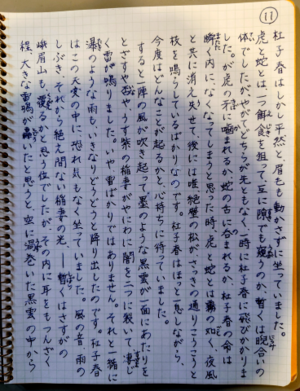 ⑪
杜子春はしかし平然と、眉毛も動かさずに坐っていました。
虎と蛇とは、一つ餌食を狙って、互に隙でも窺うのか、暫くは睨合いの
体でしたが、やがてどちらが先ともなく、一時に杜子春に飛びかかりま
した。が虎の牙に噛まれるか、蛇の舌に呑まれるか、杜子春の命は
瞬く内に、なくなってしまうと思った時、虎と蛇とは霧の如く、夜風
と共に消え失せて、後には唯、絶壁の松が、さっきの通りこうこうと
枝を鳴らしているばかりなのです。杜子春はほっと一息しながら、
今度はどんなことが起るかと、心待ちに待っていました。
すると一陣の風が吹き起って、墨のような黒雲が一面にあたりを
とざすや否や、うす紫の稲妻がやにわに闇を二つに裂いて、凄じ
く雷が鳴り出しました。いや、雷ばかりではありません。それと一緒に
瀑のような雨も、いきなりどうどうと降り出したのです。杜子春
はこの天変の中に、恐れ気もなく坐っていました。風の音、雨の
しぶき、それから絶え間ない稲妻の光、――暫くはさすがの
峨眉山も、覆るかと思う位でしたが、その内に耳をもつんざく
程、大きな雷鳴が轟いたと思うと、空に渦巻いた黒雲の中から